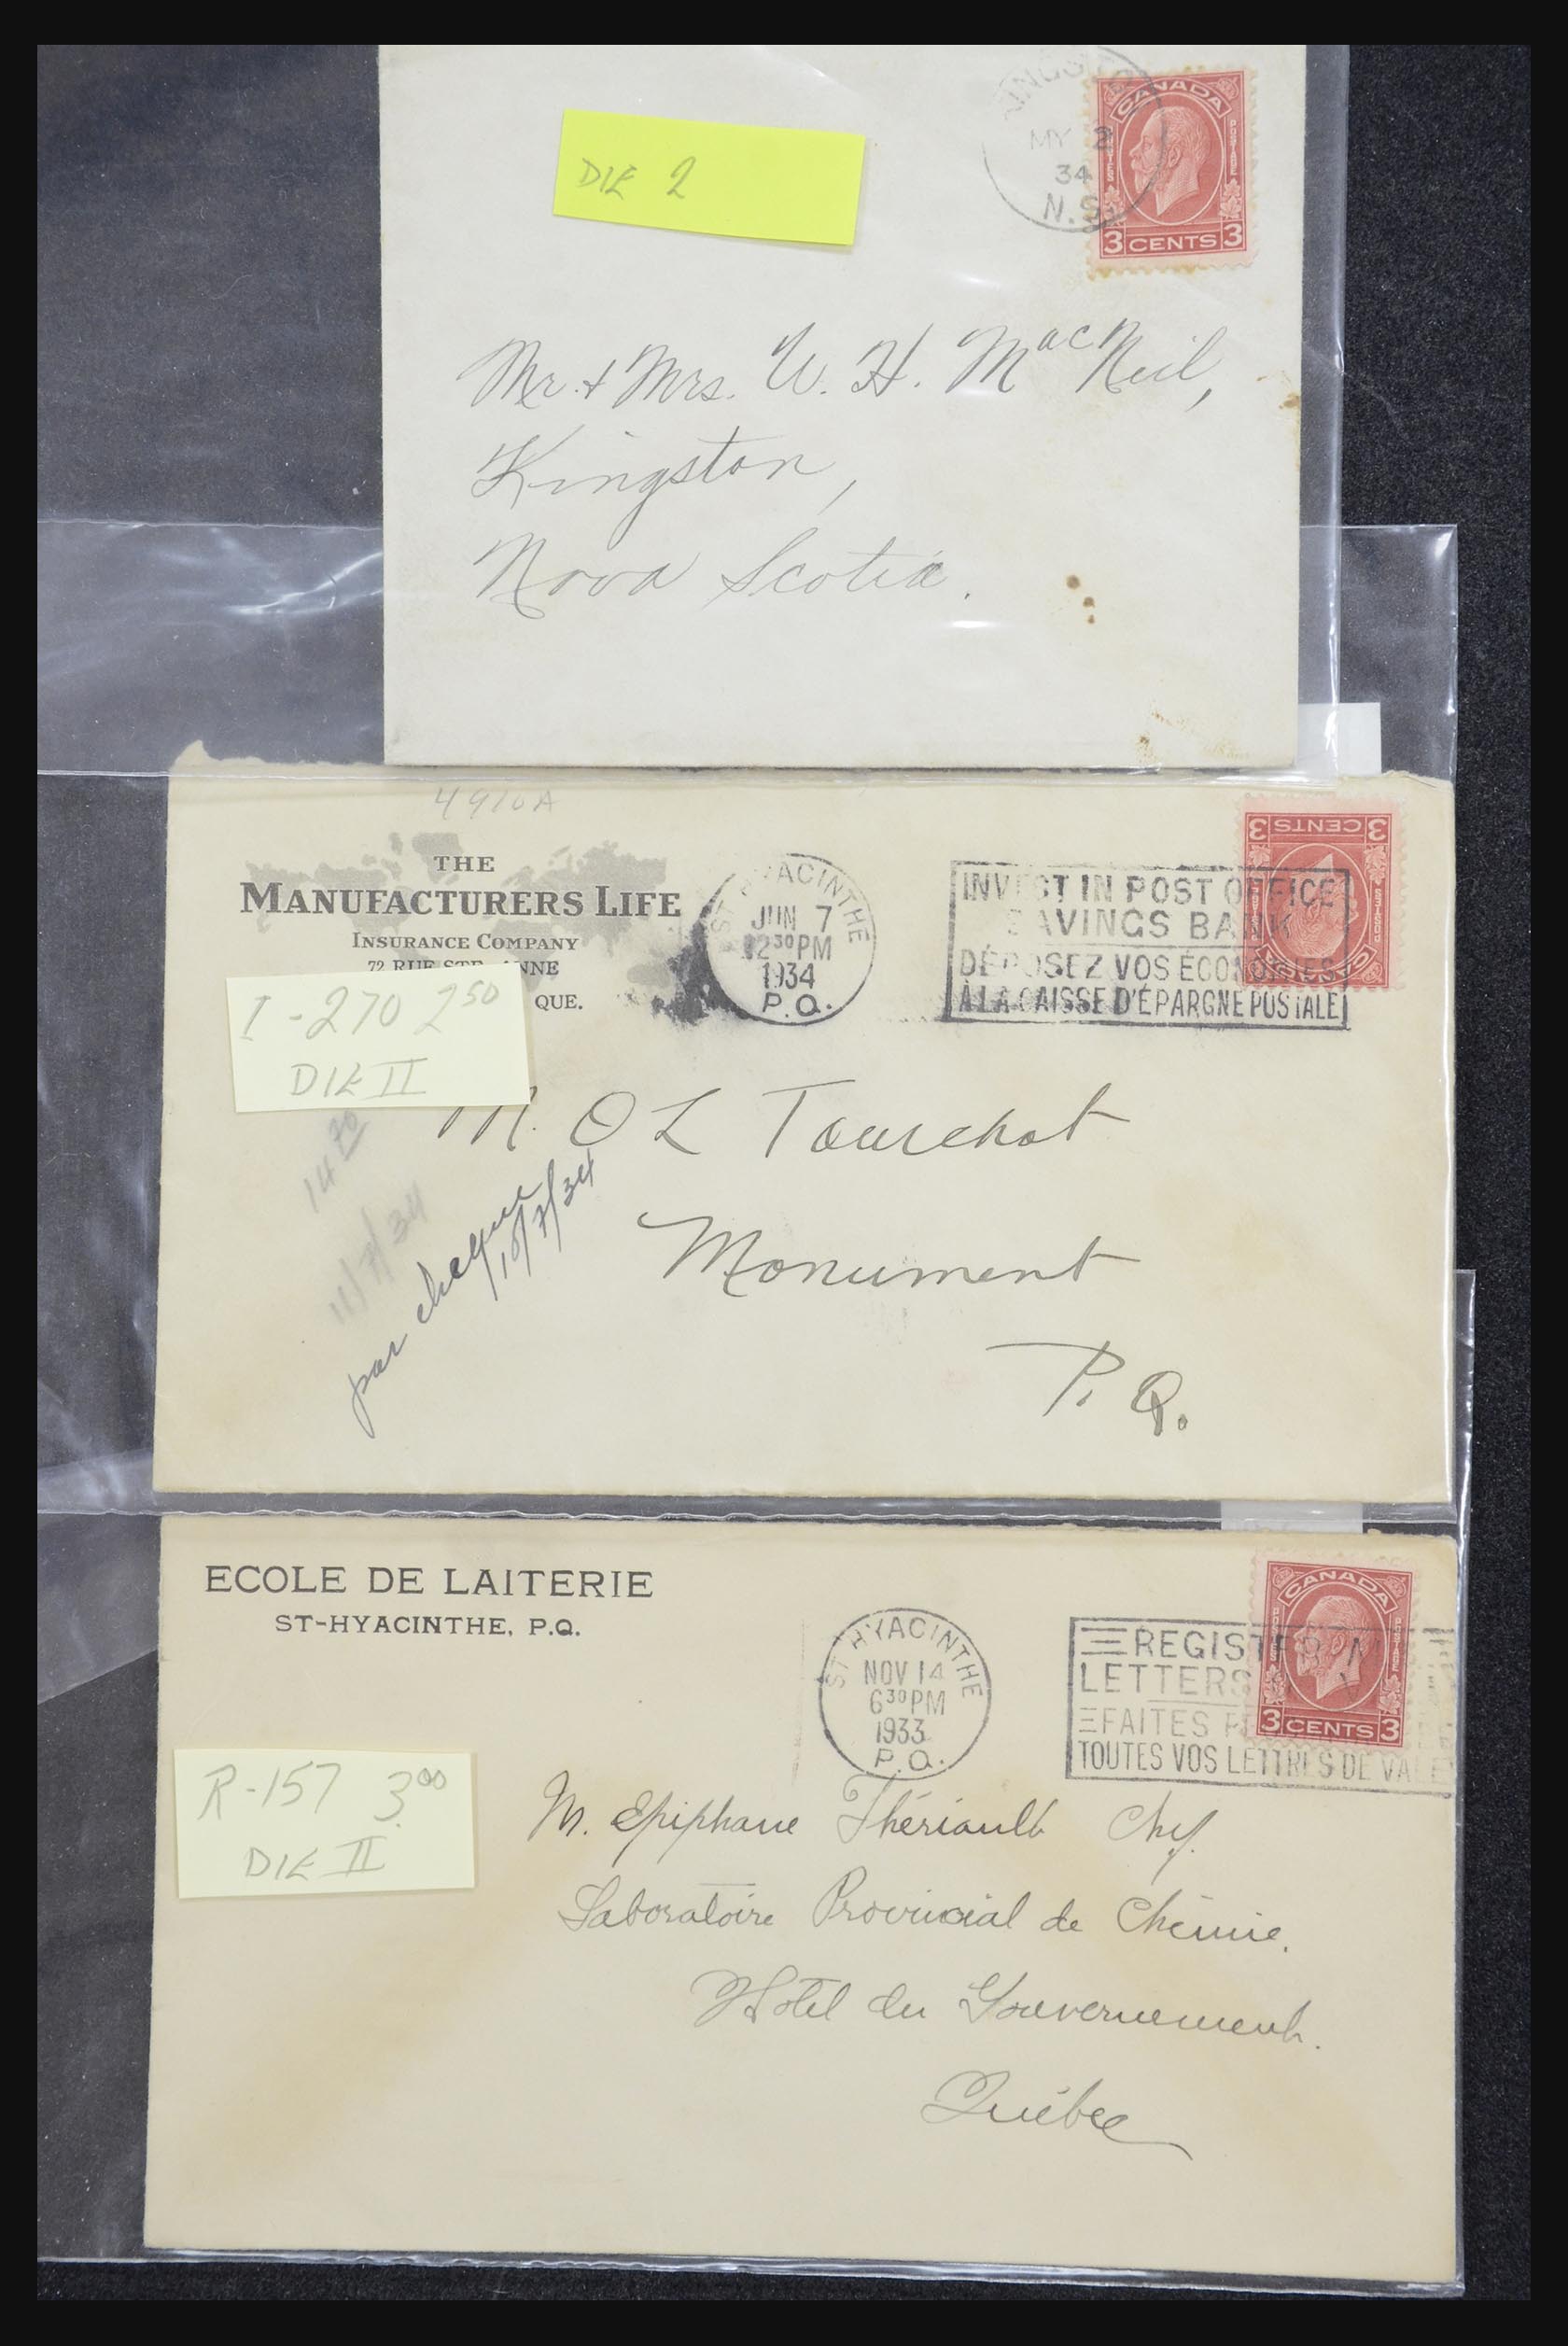 CANADA
POSTES
POSTAGE
3 CENTS 3
MY 2
34
N.S.
DIE 2
Mr. + Mrs. W. H. MacNeil,
Kingston,
Nova Scotia.
4910A
THE
MANUFACTURERS LIFE
INSURANCE COMPANY
72 RUE STE. ANNE
QUE.
I-270 2 50
DIE II
HYACINTHE
JUN 7
1230 PM
1934
P.Q.
INVEST IN POST OFFICE
SAVINGS BANK
DÉPOSEZ VOS ÉCONOMIES
À LA CAISSE D'ÉPARGNE POSTALE
3 CENTS 3
M. O L Tourchot
Monument
P. Q.
14 70
11/7/34
par cheque
10/7/34
ECOLE DE LAITERIE
ST-HYACINTHE, P.Q.
ST HYACINTHE
NOV 14
630 PM
1933
P.Q.
REGISTER
LETTERS
FAITES
TOUTES VOS LETTRES DE VALE
CANADA
3 CENTS 3
R-157 3.00
DIE II
M. Epiphane Thériault Chf.
Laboratoire Provincial de Chimie.
Hôtel du Gouvernement.
Québec